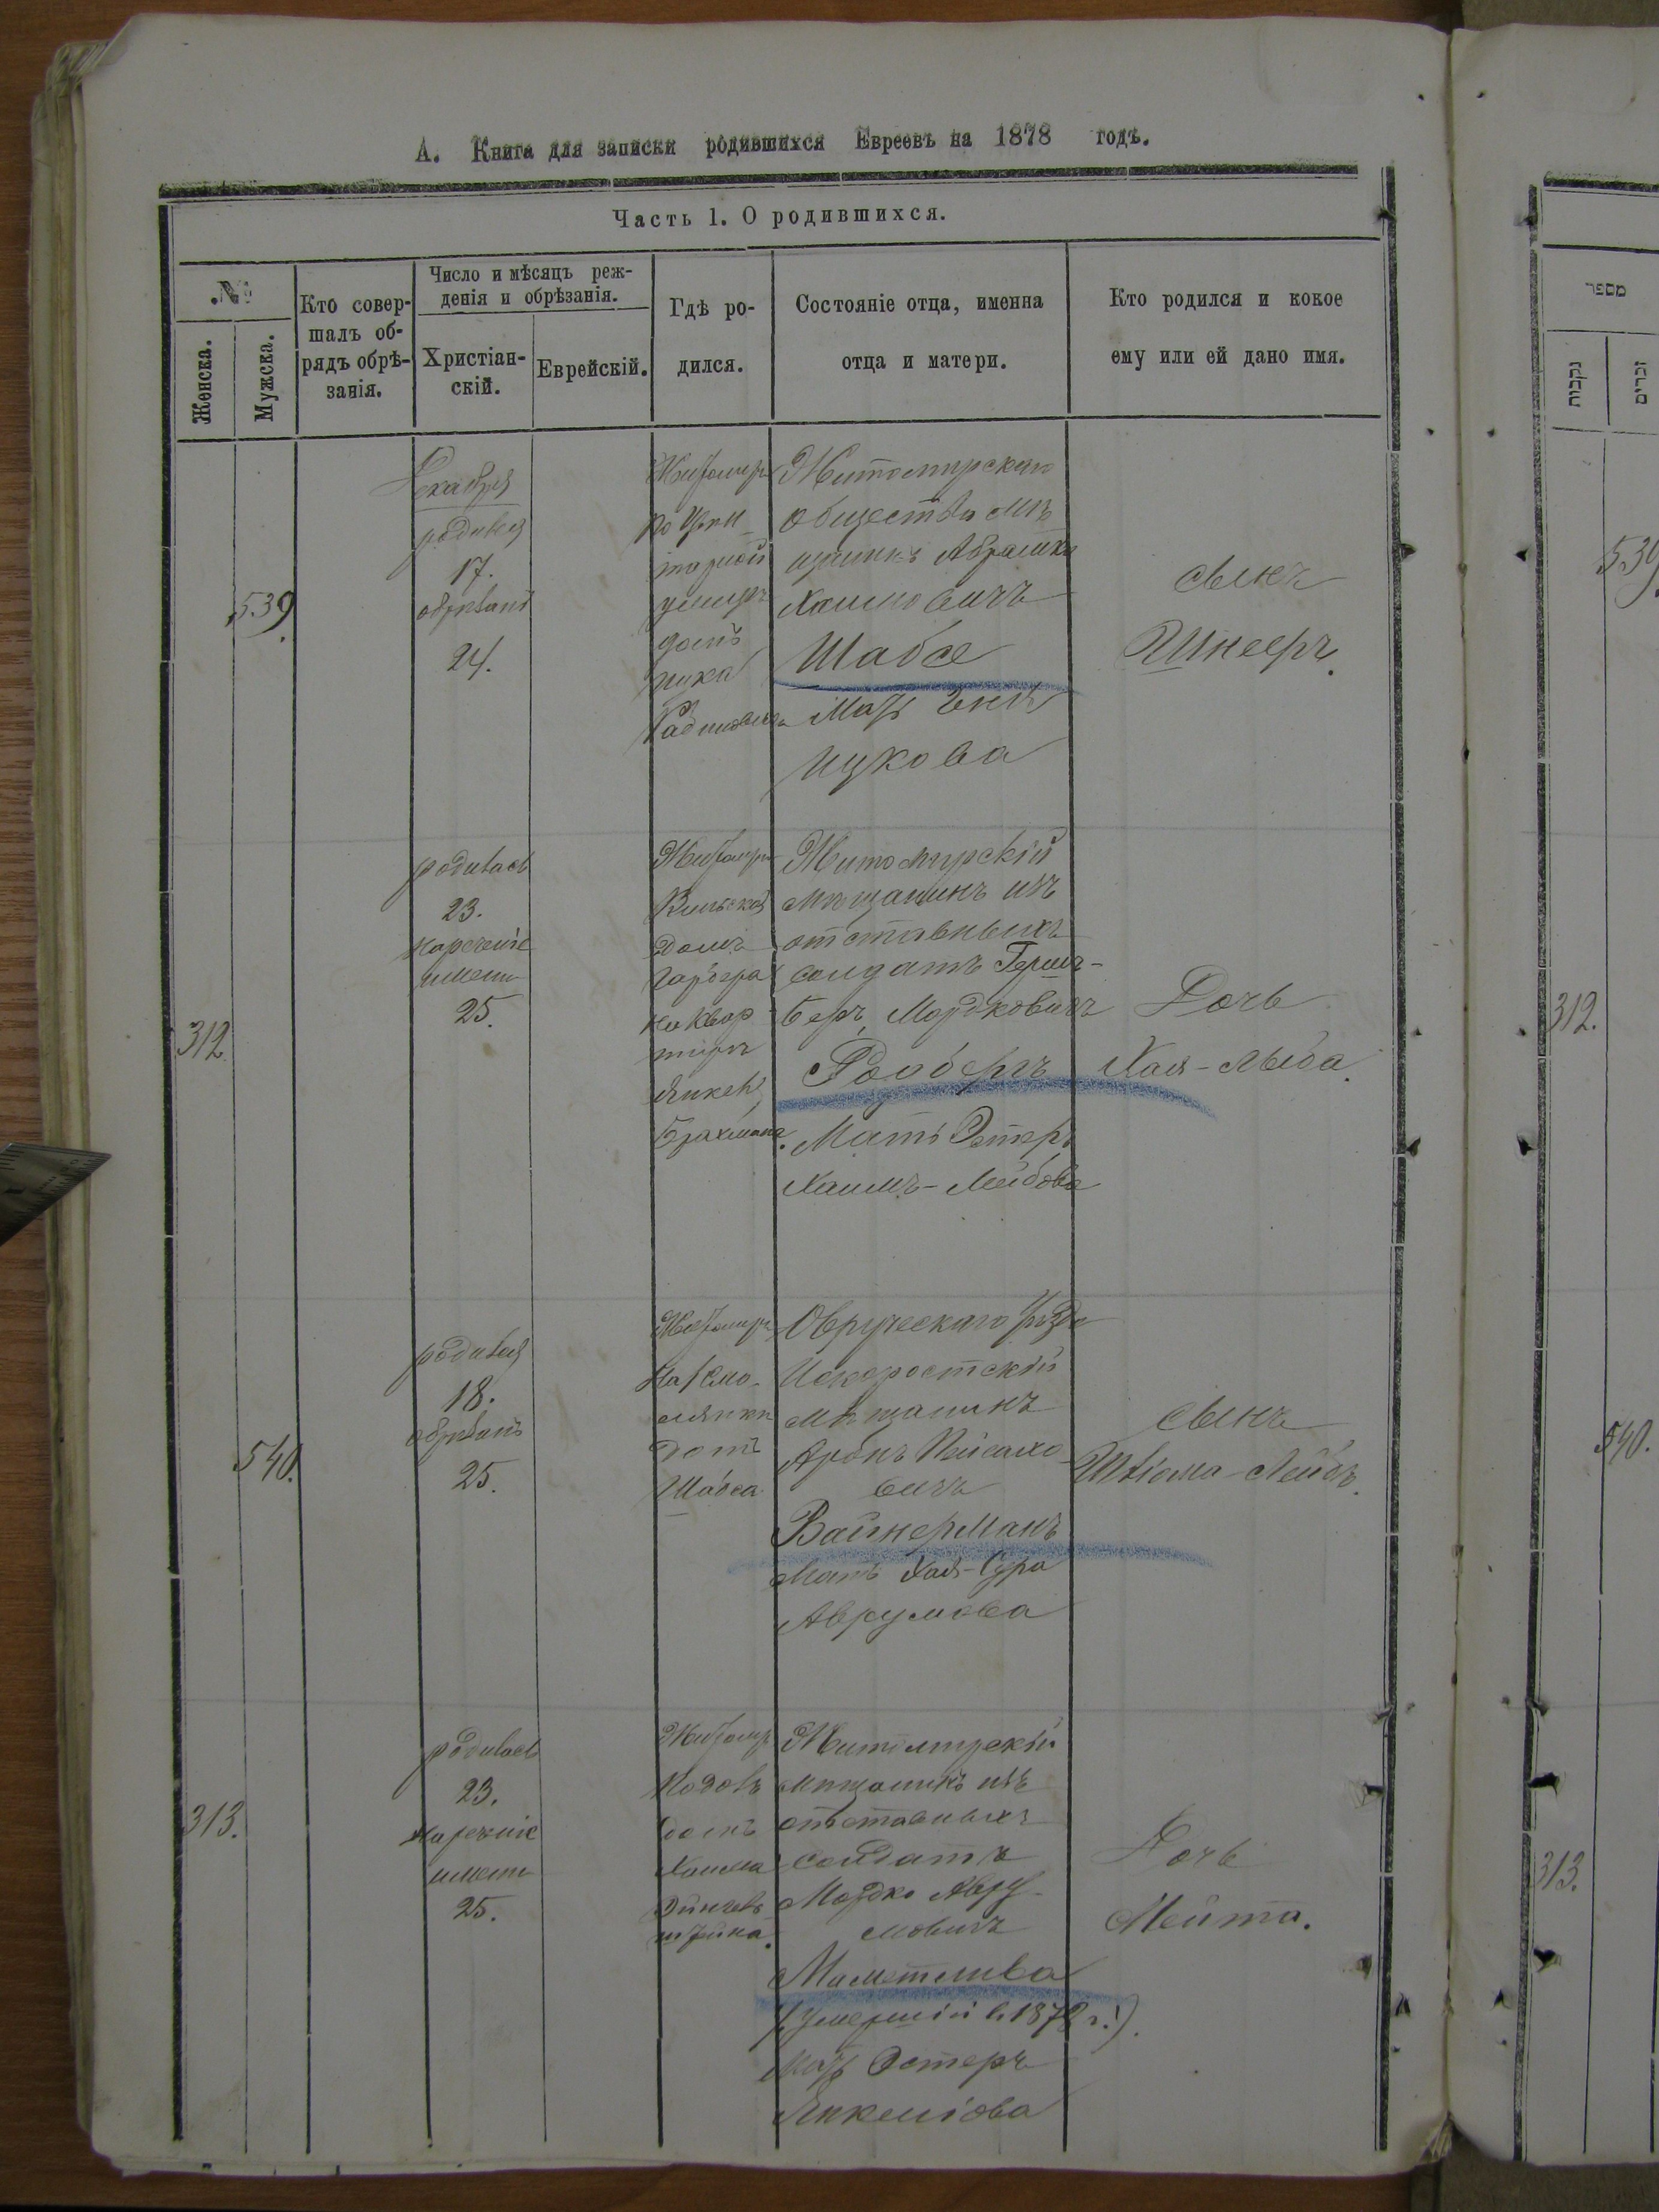 А. Книга для записки родившихся Евреевъ на 1878 годъ.
Часть 1. О родившихся.
№
Женска.
Мужска.
Кто совер-
шалъ об-
рядъ обрѣ-
занія.
Число и мѣсяцъ реж-
денія и обрѣзанія.
Христіан-
скій.
Еврейскій.
Гдѣ ро-
дился.
Состояніе отца, именна
отца и матери.
Кто родился и кокое
ему или ей дано имя.
מספר
נקבות
זכרים
539
Декабря
родився
17.
обрѣзанъ
24.
Житомиръ
домъ
Житомирскаго
общества мѣ
щанинъ Абрамко
Хаимовичъ
Шабсе
Мать Енъ
Ицкова
сынъ
Шнееръ.
539.
312
родилась
23.
нареченіе
имени
25.
Житомиръ
Вильской
домъ
на квар
тирѣ
Янкеля
Брахмана.
Житомирскій
мѣщанинъ изъ
отставныхъ
солдатъ Гершъ-
Беръ Мордковичъ
Ройбергъ
Мать Эстеръ
Хаимъ-Лейбова
Дочь
Хая-Лыба.
312.
540.
родився
18.
обрѣзанъ
25.
Житомиръ
на Смо-
лянкѣ
домъ
Шабса
Овруческаго уѣзда
Искоростскій
мѣщанинъ
Аронъ Пейсахо-
вичъ
Вайнерманъ
Мать Хая-Сура
Аврумова
сынъ
Шліома-Лейбъ.
540.
313.
родилась
23.
нареченіе
имени
25.
Житомиръ
домъ
Хаима
штейна.
Житомирскій
мѣщанинъ изъ
отставныхъ
солдатъ
Мордко Авру-
мовичъ
(умершій въ 1878 г.!).
Мать Эстеръ
Янкеліова
Дочь
Мейта.
313.